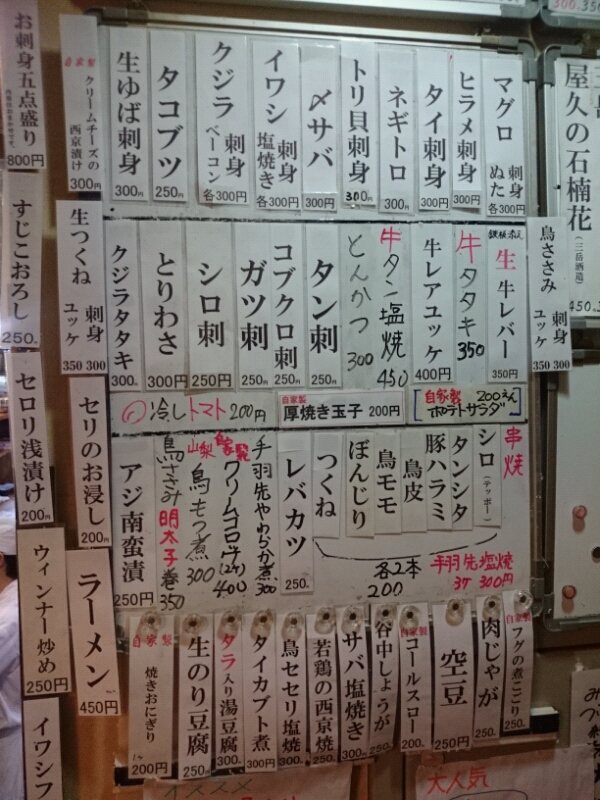 お刺身五点盛り
800円
すじこおろし
250.
セロリ浅漬け
200円
ウィンナー炒め
250円
イワシフ
自家製
クリームチーズの
西京漬け
300円
生つくね
刺身
ユッケ
350 300
セリのお浸し
200円
ラーメン
450円
マグロ
刺身
ぬた
各300円
ヒラメ刺身
300円
タイ刺身
300円
ネギトロ
300円
トリ貝刺身
300円
〆サバ
300円
イワシ
刺身
塩焼き
各300円
クジラ
刺身
ベーコン
各300円
タコブツ
250円
生ゆば刺身
300円
鳥ささみ
刺身
ユッケ
350 300
生 牛レバー
350円
牛タタキ
350
牛レアユッケ
400円
牛タン塩焼
450
とんかつ
300
タン刺
250円
コブクロ刺
250円
ガツ刺
250円
シロ刺
250円
とりわさ
300円
クジラタタキ
300円
冷しトマト 200円
自家製
厚焼き玉子 200円
自家製 200えん
ポテトサラダ
串焼
シロ(テッポー)
タンシタ
豚ハラミ
鳥皮
鳥モモ
ぼんじり
つくね
各2本
200
手羽先塩焼
3ケ 300円
レバカツ
250.
手羽先やわらか煮
300
自家製
クリームコロッケ(2ケ)
400
山梨
鳥もつ煮
300
鳥ささみ明太子巻
350
アジ南蛮漬
250円
自家製
フグの煮こごり
250.
肉じゃが
250.
空豆
250円
自家製
コールスロー
200.
谷中しょうが
250.
サバ塩焼き
300円
若鶏の西京焼
250.
鳥セセリ塩焼
300.
タイカブト煮
300円
タラ入り湯豆腐
300.
生のり豆腐
250円
自家製
焼きおにぎり
200円
屋久の石楠花
(三岳酒造)
450.
300.350
オススメ
大人気